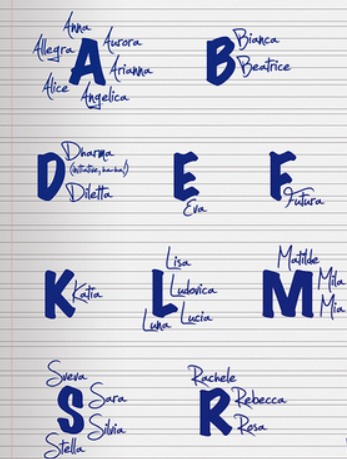 Anna
Allegra
Aurora
A
Arianna
Alice
Angelica
B
Bianca
Beatrice
D
Dharma
(Initiative, ha-ha!)
Diletta
E
Eva
F
Futura
K
Katia
L
Lisa
Ludovica
Lucia
Luna
M
Matilde
Mila
Mia
S
Sveva
Sara
Silvia
Stella
R
Rachele
Rebecca
Rosa